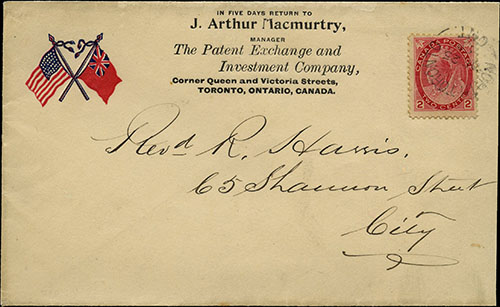 IN FIVE DAYS RETURN TO
J. Arthur Macmurtry,
MANAGER
The Patent Exchange and
Investment Company,
Corner Queen and Victoria Streets,
TORONTO, ONTARIO, CANADA.
CANADA POSTAGE
2 TWO CENTS 2
Revd R. Harris.
65 Shannon Street
City